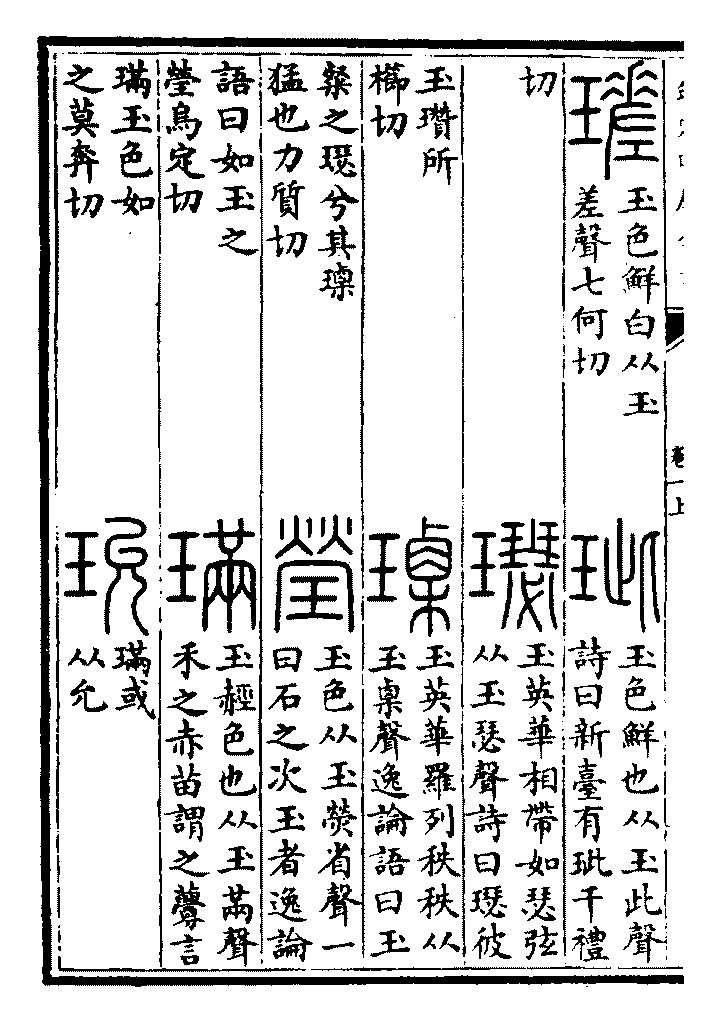 瑳
玉色鮮白从玉
差聲七何切
玼
玉色鮮也从玉此聲
詩曰新臺有玼千禮
切
璱
玉英華相帶如瑟弦
从玉瑟聲詩曰璱彼
玉瓚所
櫛切
瑮
玉英華羅列秩秩从
玉㮚聲逸論語曰玉
粲之璱兮其瑮
猛也力質切
瑩
玉色从玉熒省聲一
曰石之次玉者逸論
語曰如玉之
瑩烏定切
璊
玉䞓色也从玉㒼聲
禾之赤苗謂之虋言
璊玉色如
之莫奔切
玧
璊或
从允
卷一上